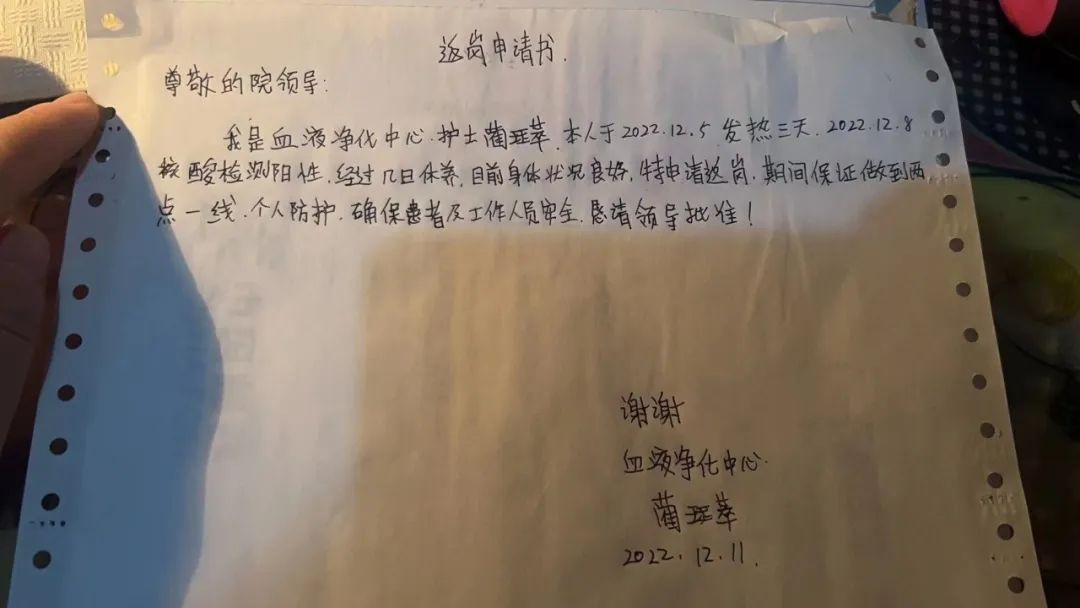 返岗申请书.
尊敬的院领导:
我是血液净化中心.护士蔺珏萃.本人于2022.12.5 发热三天.2022.12.8
核酸检测阳性.经过几日休养,目前身体状况良好,特申请返岗.期间保证做到两
点一线.个人防护.确保患者及工作人员安全.恳请领导批准!
谢谢
血液净化中心.
蔺珏萃
2022.12.11.